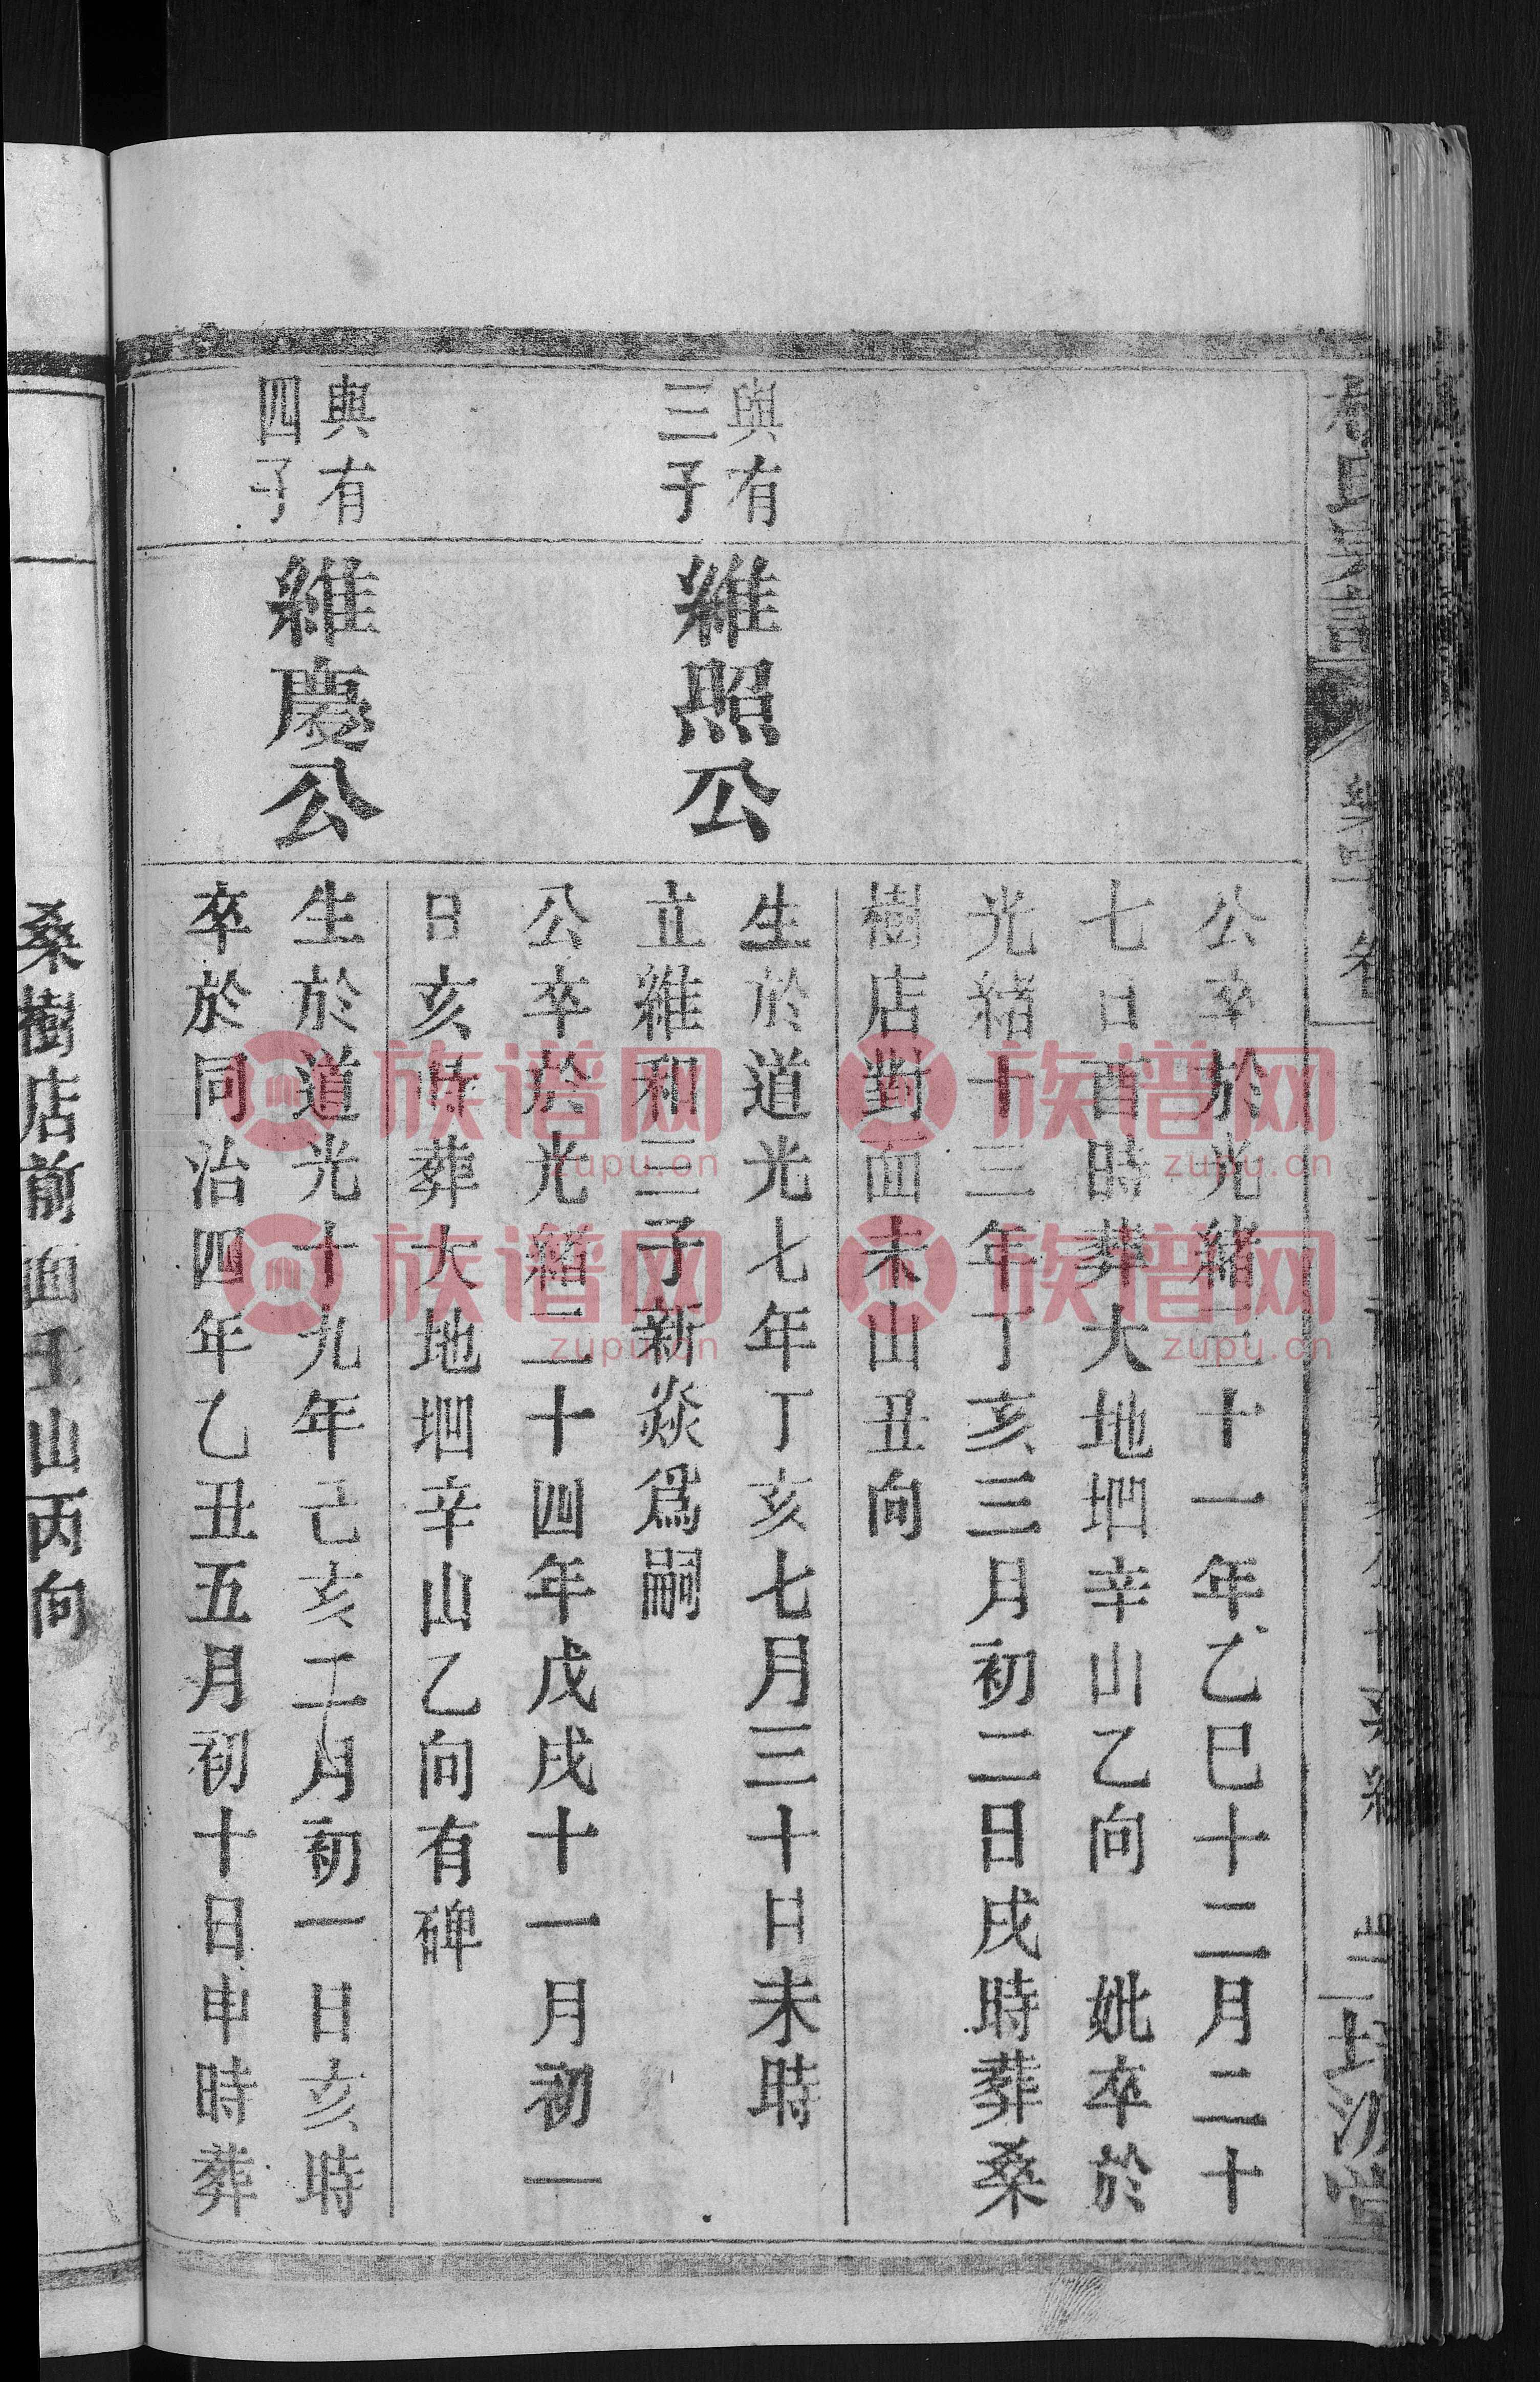 公卒於光緒三十一年乙巳十二月二十
七日酉時葬大地堌辛山乙向 妣卒於
光緒十三年丁亥三月初二日戌時葬桑
樹店對面未山丑向
與有
三子
維照公
生於道光七年丁亥七月三十日未時
立維和三子新焱爲嗣
公卒於光緒二十四年戊戌十一月初一
日亥時葬大地堌辛山乙向有碑
與有
四子
維慶公
生於道光十九年己亥二月初一日亥時
卒於同治四年乙丑五月初十日申時葬
桑樹店前面壬山丙向
族谱网
zupu.cn
族谱网
zupu.cn
族谱网
zupu.cn
族谱网
zupu.cn